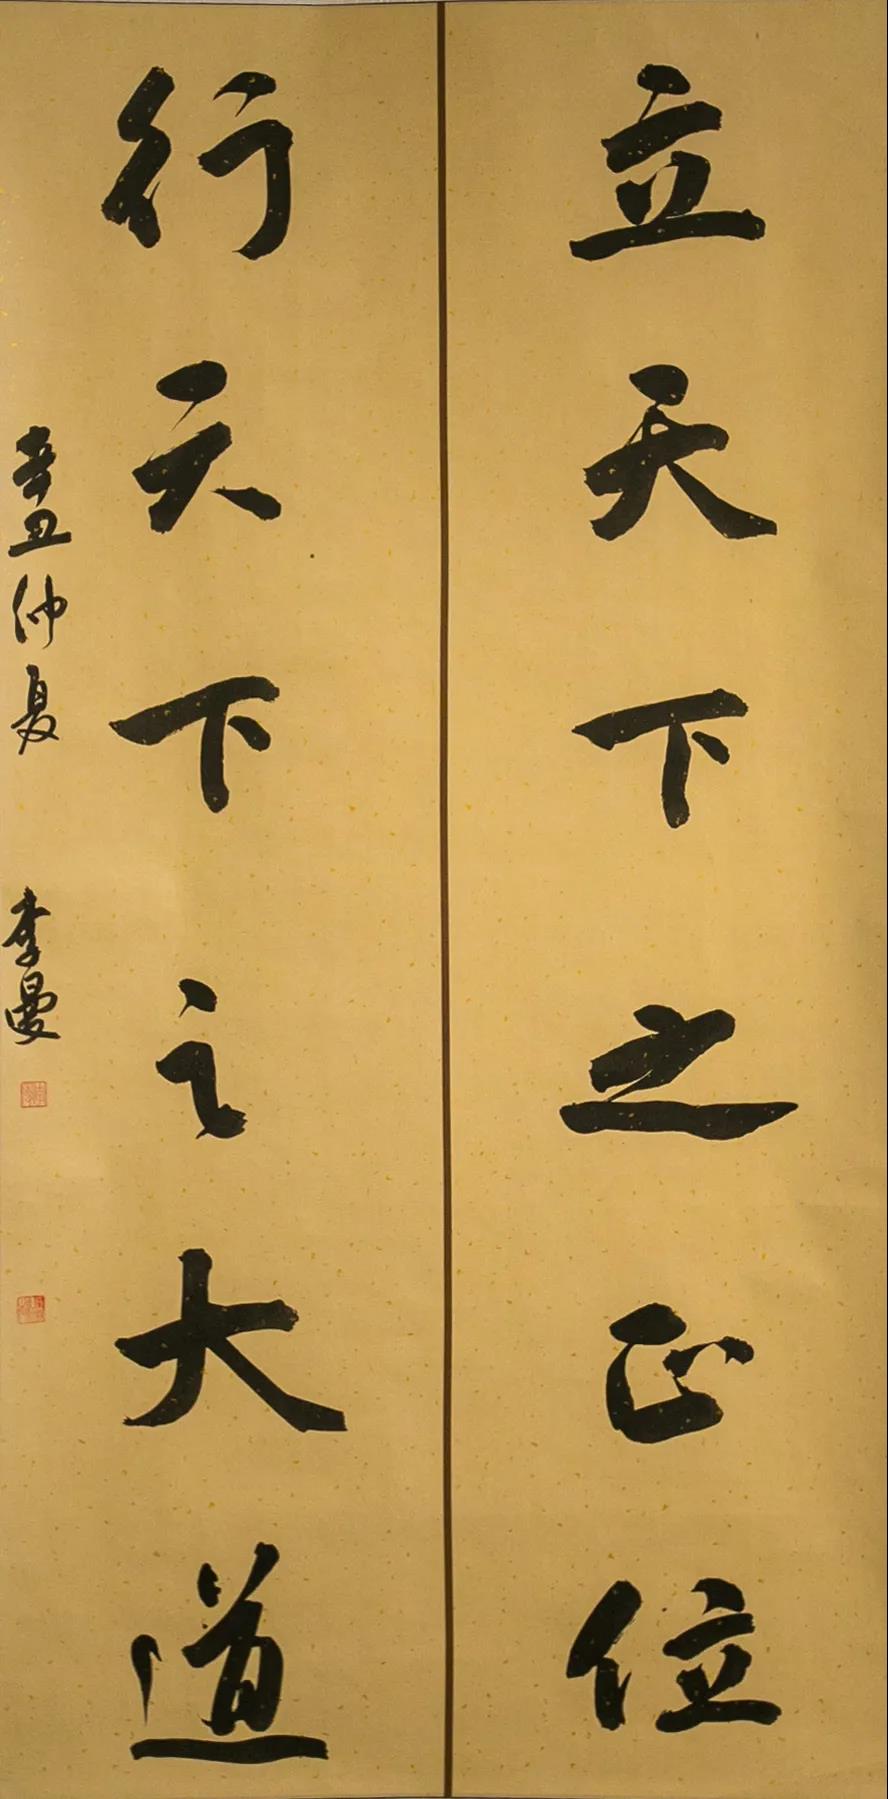 立天下之正位
行天下之大道
辛丑仲夏
李曼